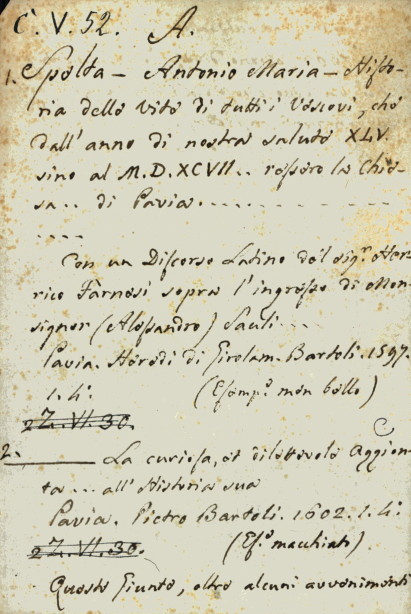 C. V. 52. A.
1. Spelta - Antonio Maria - Histo-
ria delle vite di tutti i Vescovi, che
dall'anno di nostra salute XLV
sino al M.D.XCVII.. ressero la Chie-
sa .. di Pavia. . . . . . . . . . . . .
- - - -
Con un Discorso Latino del sig.r Hen-
rico Farnesi sopra l'ingresso di Mon-
signor (Alessandro) Sauli...
Pavia. Heredi di Girolam. Bartoli. 1597.
1. 4.° (Esemp.° men bello)
2Z. VI. 30.
2. ——— La curiosa, et dilettevole Aggion-
ta ... all'Historia sua
Pavia. Pietro Bartoli. 1602. 1. 4.°
2Z. VI. 30. (Es.° macchiato)
Queste Giunte, oltre alcuni avvenimenti